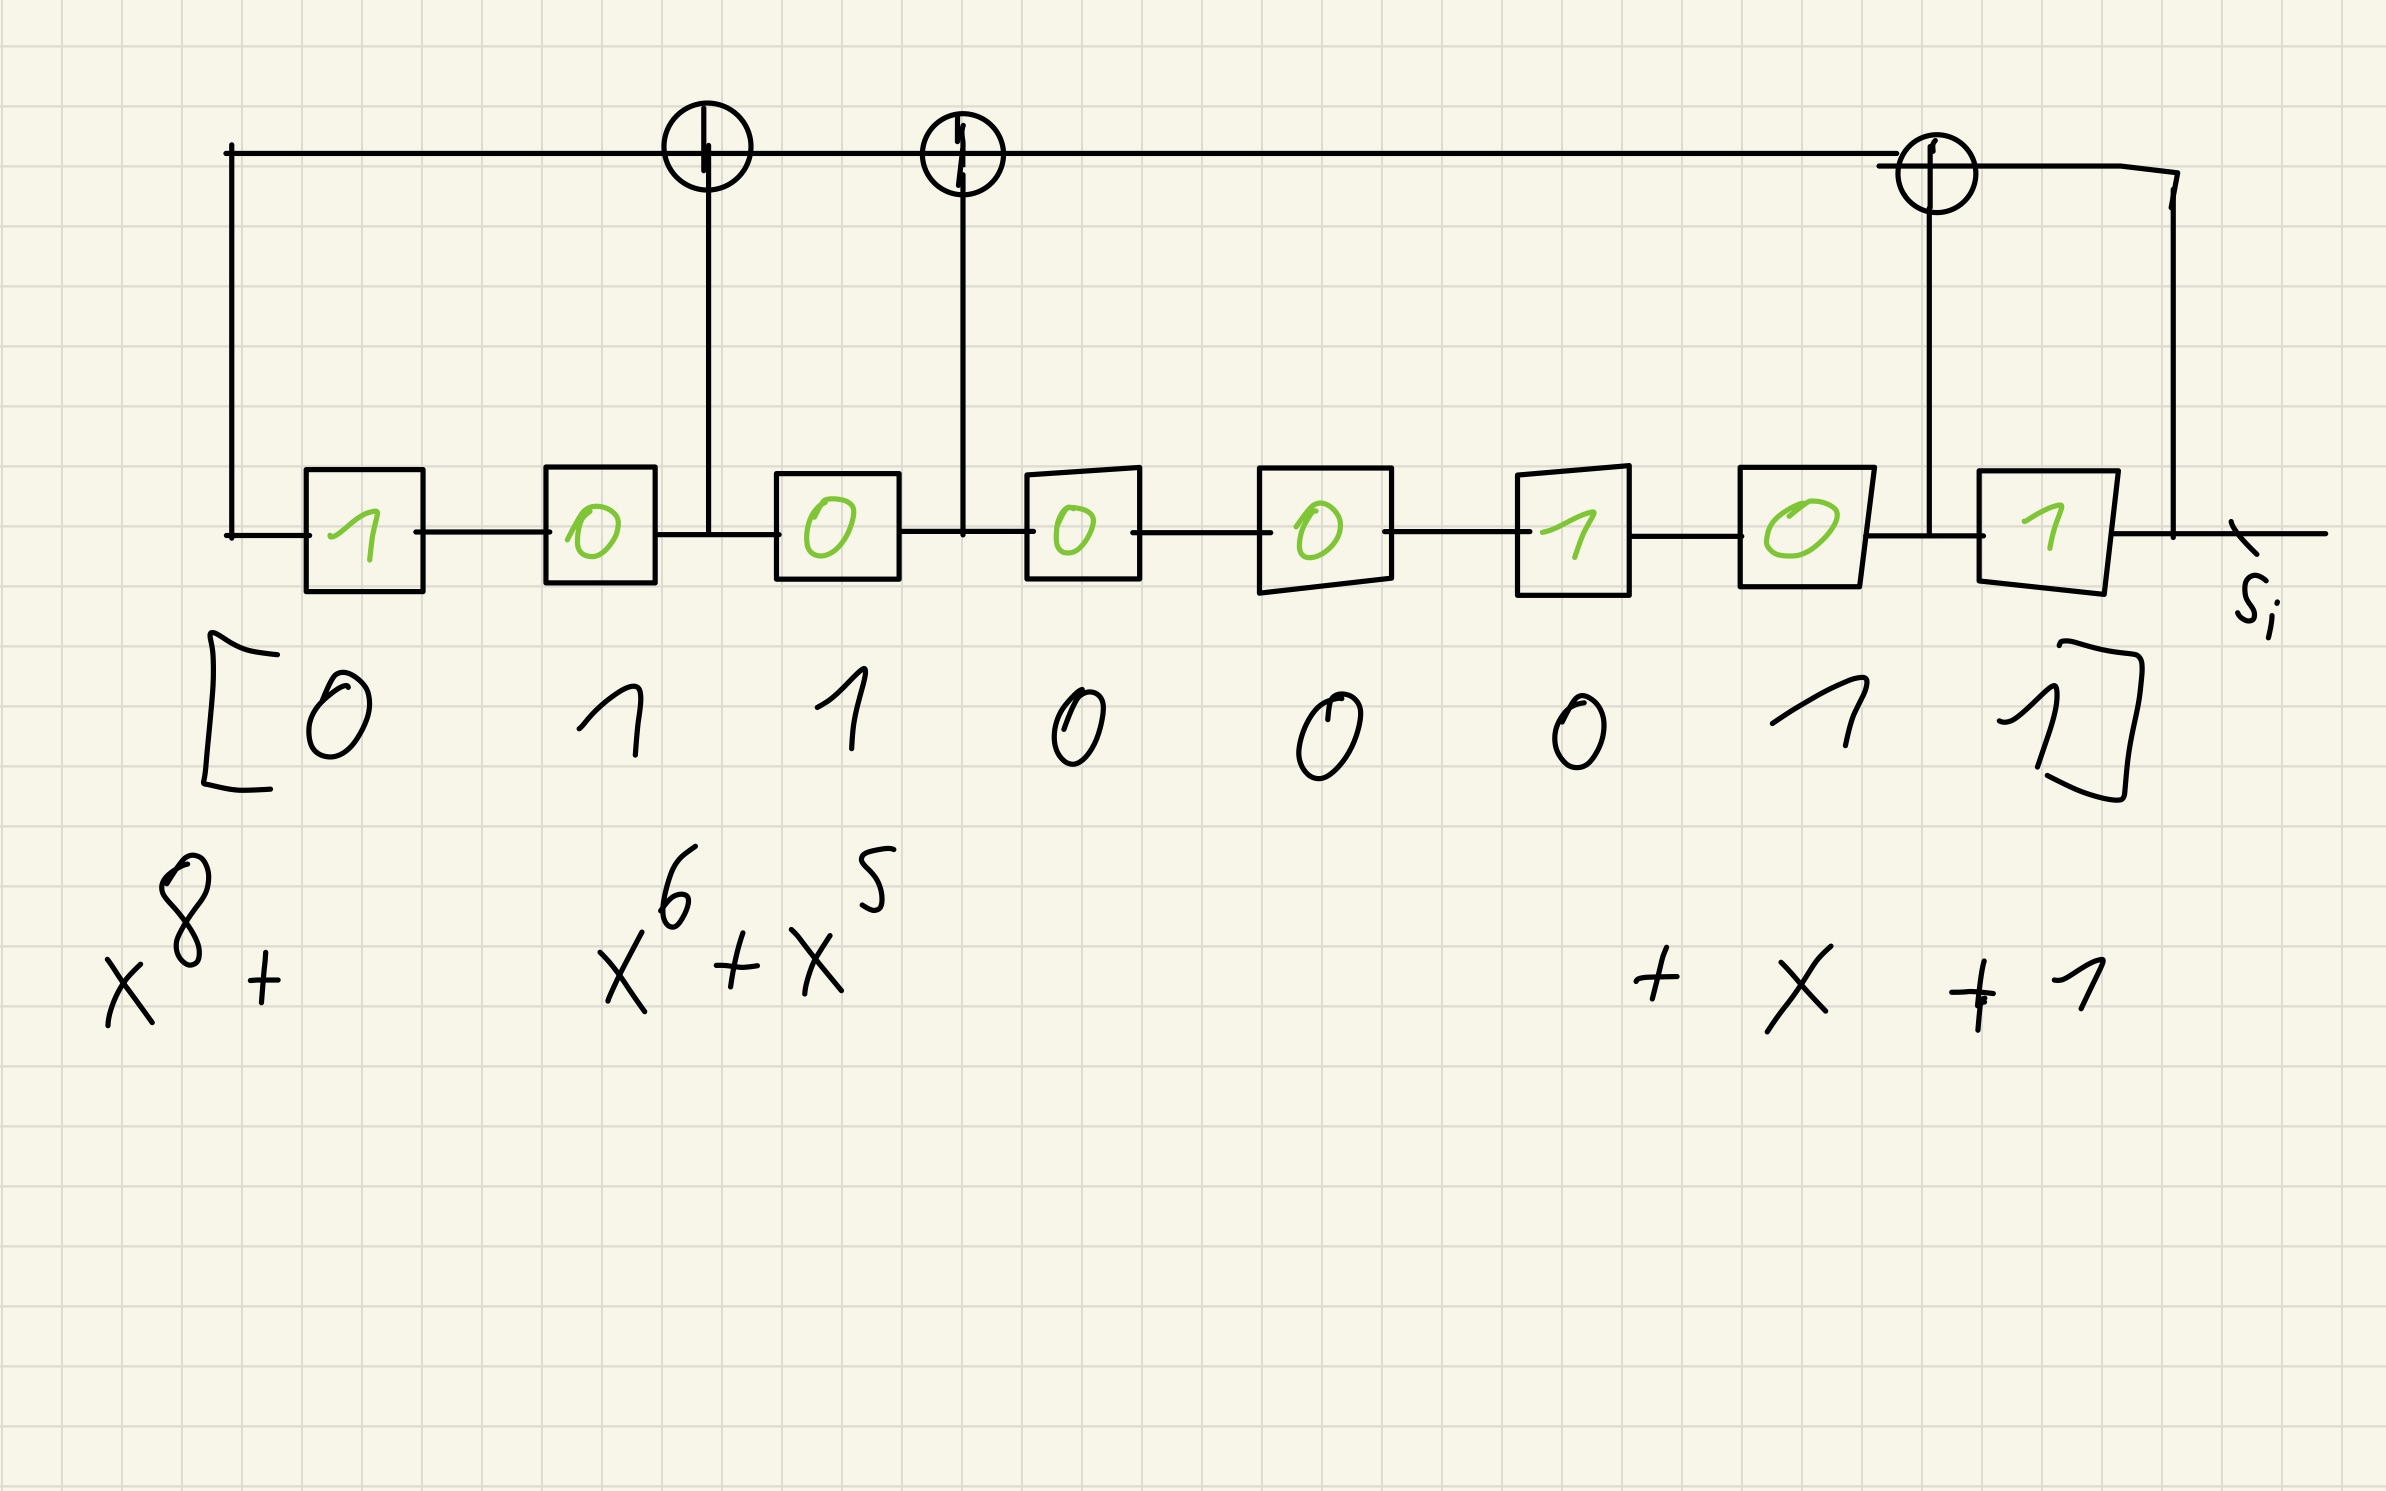 1 0 0 0 0 1 0 1
s_i
[0 1 1 0 0 0 1 1]
x^8 + x^6 + x^5 + x + 1